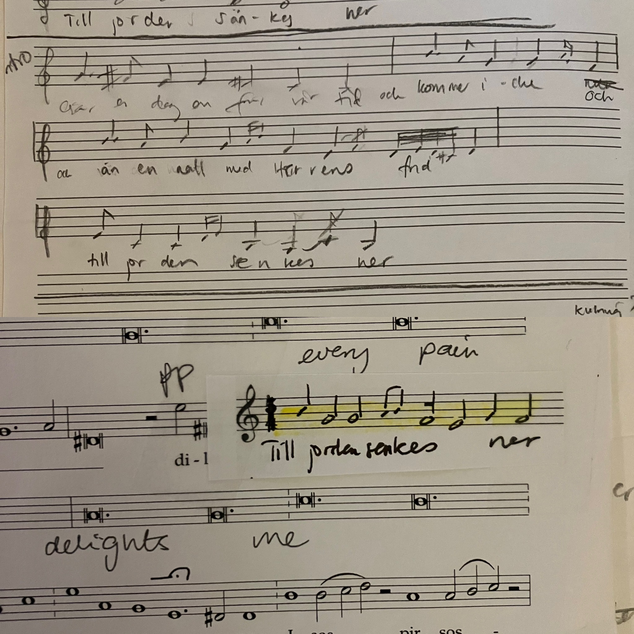 Till jorden sänkes ner
en dag en från vår tid och komma i - che
och
än en natt med Herrens frid
till jor den sen kes ner
Kulning
every pain
pp
di-l
Till jorden senkes ner
delights me
pir sos -